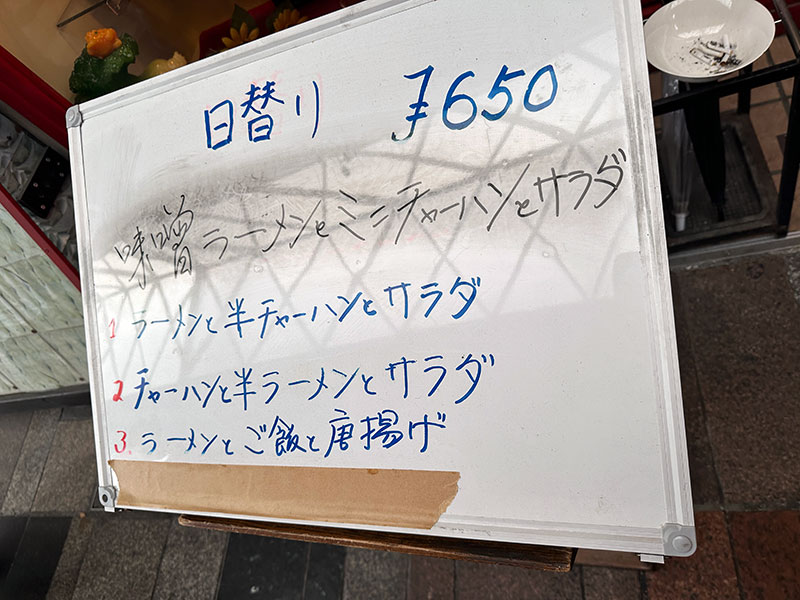 日替り ¥650
味噌ラーメンとミニチャーハンとサラダ
1 ラーメンと半チャーハンとサラダ
2 チャーハンと半ラーメンとサラダ
3. ラーメンとご飯と唐揚げ